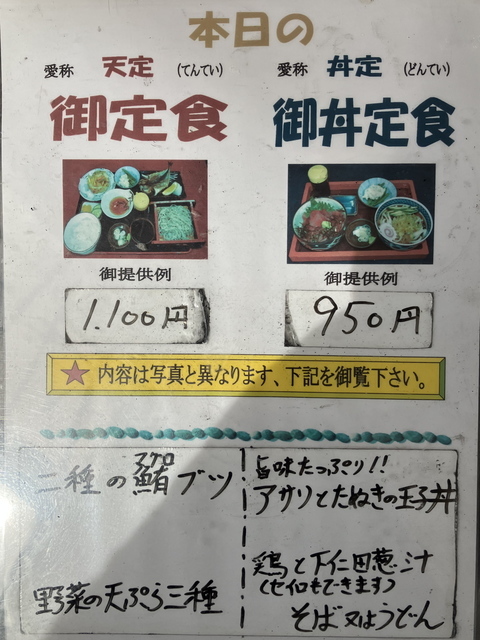 本日の
愛称 天定 (てんてい)
御定食
御提供例
1.100円
愛称 丼定 (どんてい)
御丼定食
御提供例
950円
★ 内容は写真と異なります、下記を御覧下さい。
二種の鮪ブツ
マグロ
野菜の天ぷら三種
旨味たっぷり!!
アサリとたぬきの玉子丼
鶏と下仁田葱汁
(セイロもできます)
そば又はうどん